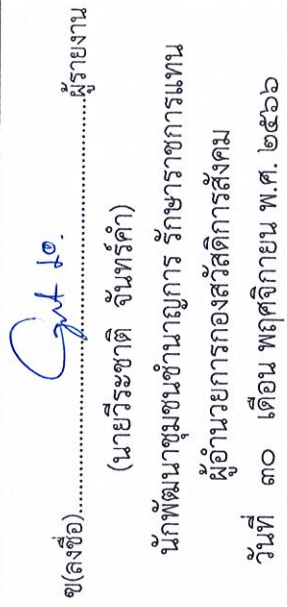 ข(ลงชื่อ)..............................................ผู้รายงาน
(นายวีระชาติ จันทร์คำ)
นักพัฒนาชุมชนชำนาญการ รักษาราชการแทน
ผู้อำนวยการกองสวัสดิการสังคม
วันที่ ๓๐ เดือน พฤศจิกายน พ.ศ. ๒๕๖๖